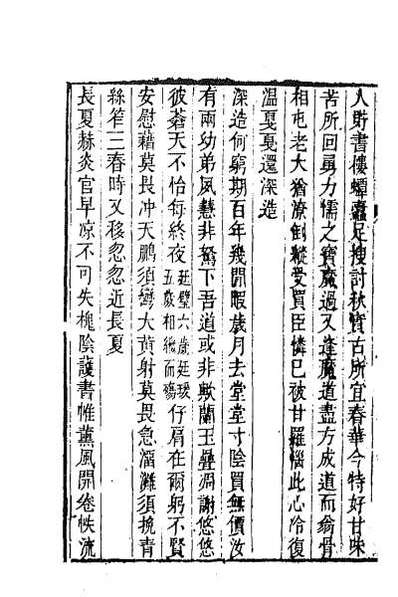 人貯書樓蟫蠹足搜討秋實古所宜春華今特好甘味
苦所回勇力懦之寶魔過又逢魔道盡方成道而翁骨
相屯老大猶潦倒縱受買臣憐已被甘羅惱此心冷復
溫戛戛還深造
深造何窮期百年幾閒暇歲月去堂堂寸陰買無價汝
有兩幼弟夙慧非駑下吾道或非歟蘭玉疊凋謝悠悠
彼蒼天不怡每終夜廷璧六歲廷瑗五歲相繼而殤仔肩在爾躬不賢
安慰藉莫畏冲天鵬須彎大黃射莫畏急溜灘須挽青
絲笮三春時又移忽忽近長夏
長夏赫炎官早凉不可失槐陰護書帷薰風開卷帙流